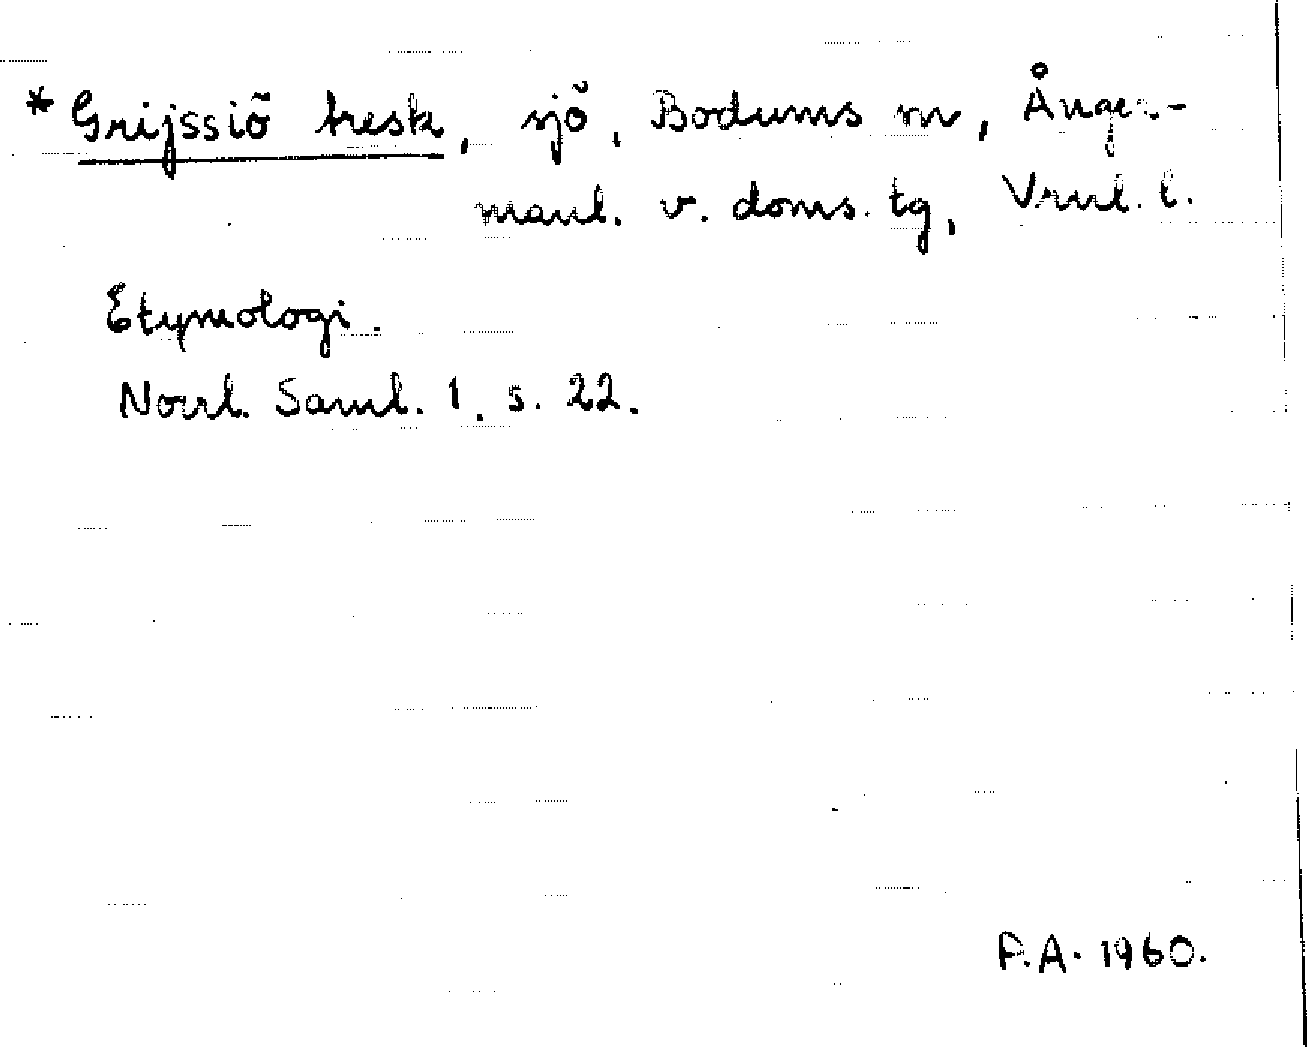 * Grijssiö tresk, sjö, Bodums sn, Ånger-
manl. v. doms. tg, Vrnl. l.
Etymologi.
Norrl. Saml. 1, s. 22.
P.A. 1960.